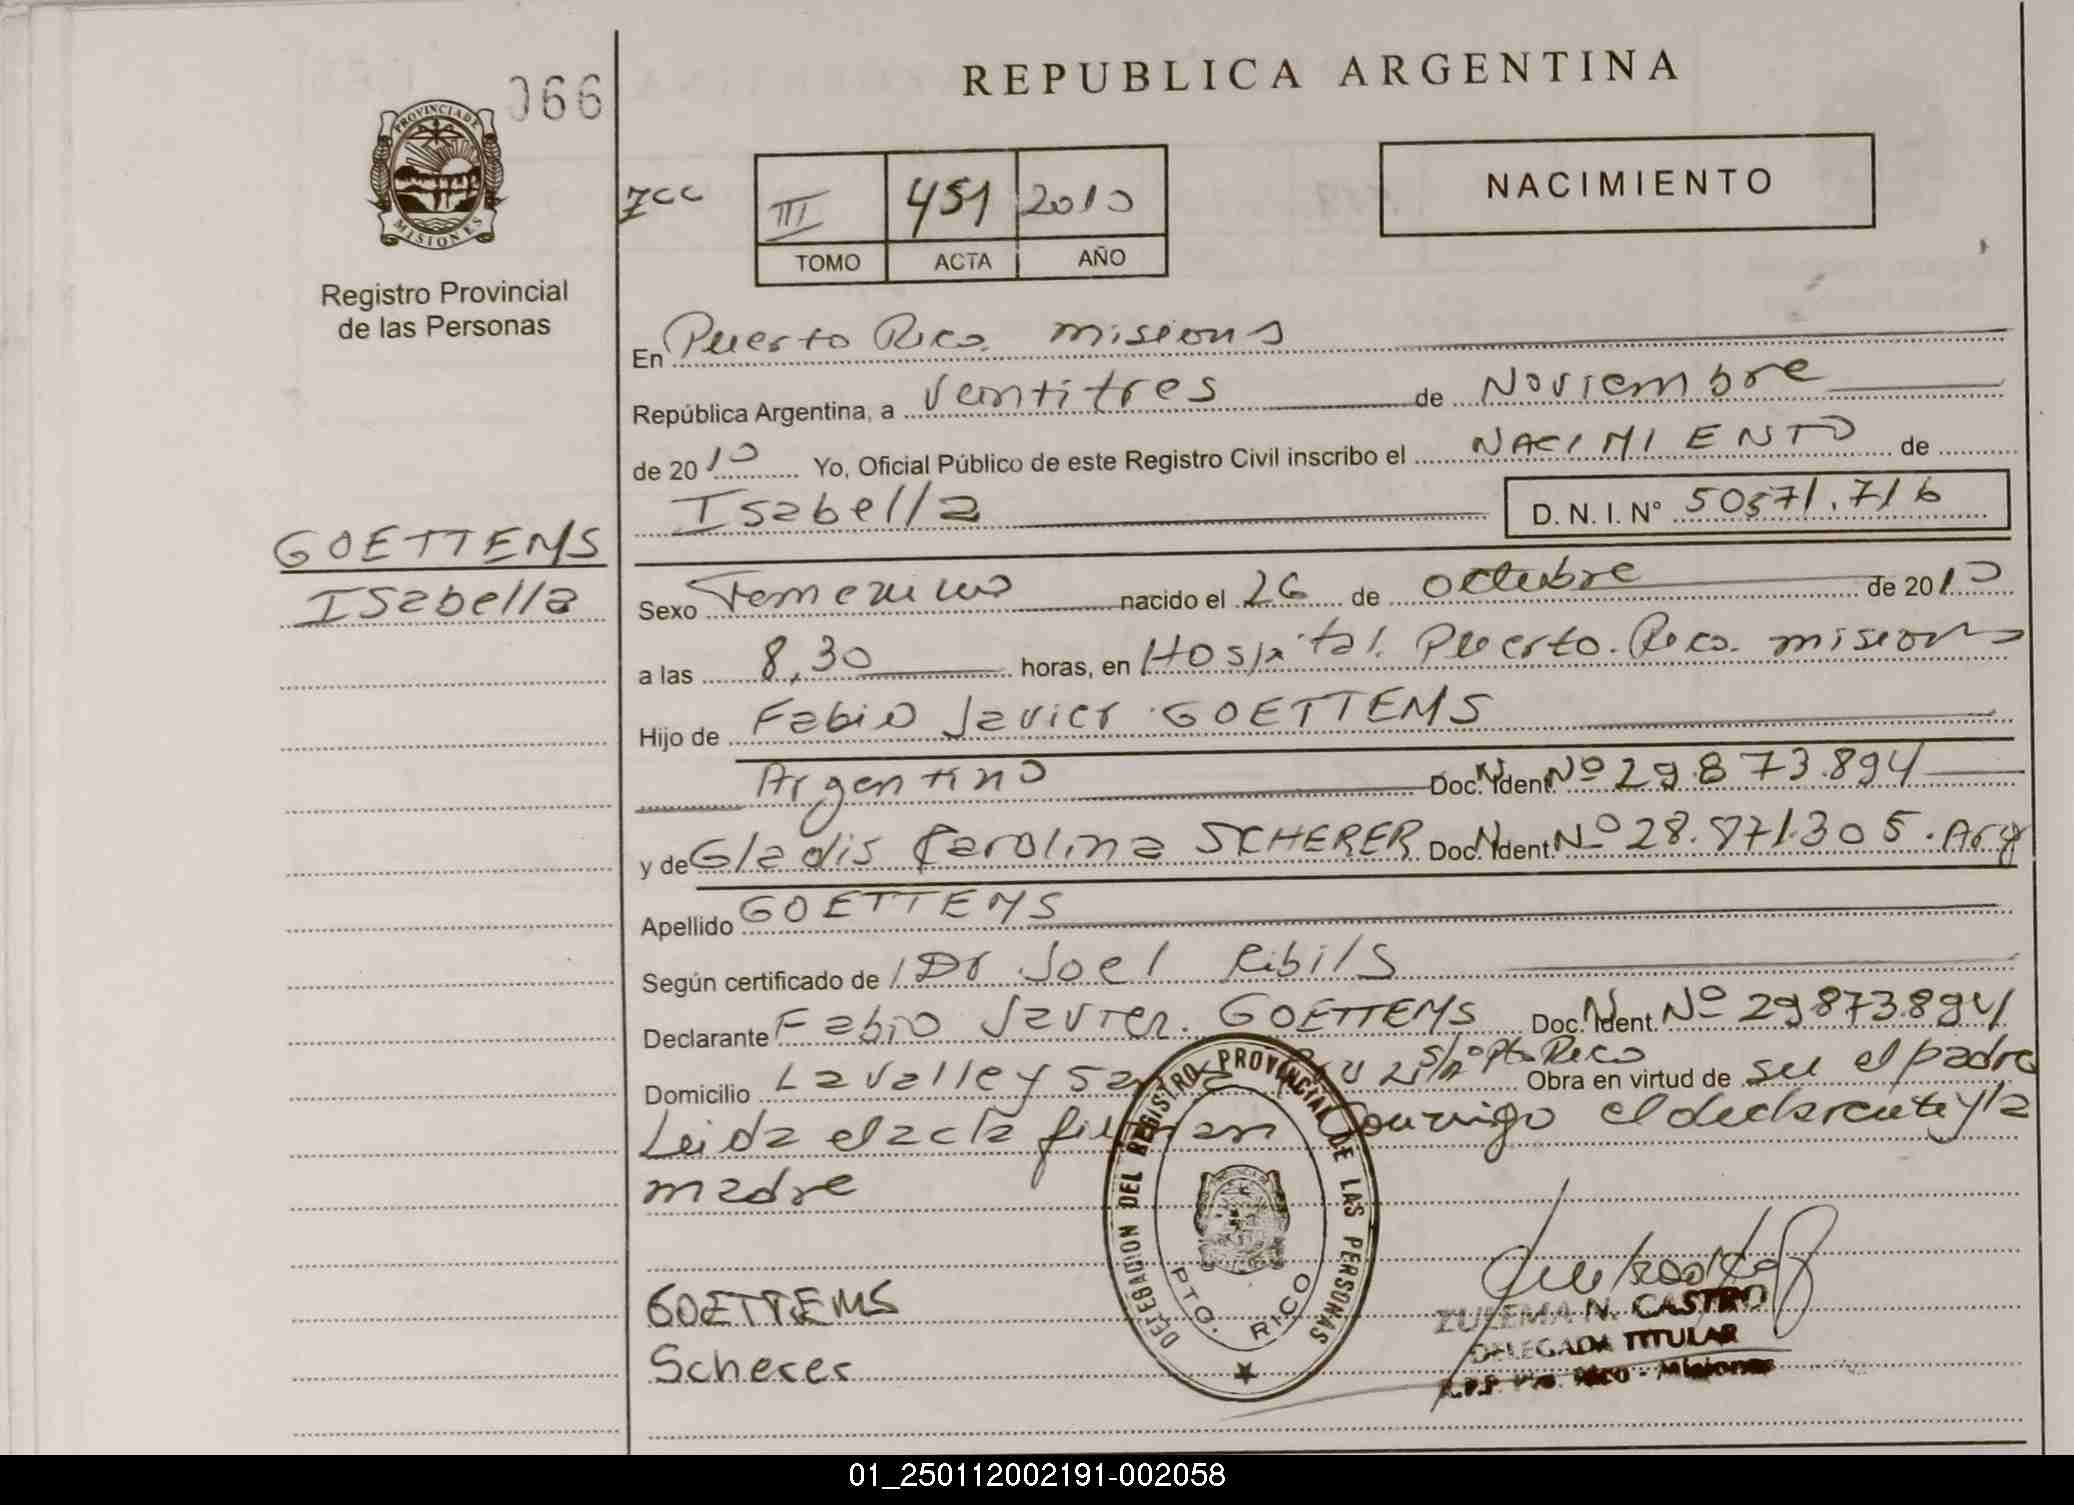 066
REPUBLICA ARGENTINA
PROVINCIA DE
MISIONES
Registro Provincial
de las Personas
III 451 2010
TOMO ACTA AÑO
NACIMIENTO
En Puerto Rico. misions
República Argentina, a Veintitres de Noviembre
de 2010 Yo, Oficial Público de este Registro Civil inscribo el NACIMIENTO de
Isabella D. N. I. N° 50571.716
GOETTEMS
Isabella
Sexo Femenino nacido el 26 de octubre de 2010
a las 8,30 horas, en Hospital. Puerto. Rico. misions
Hijo de Fabio Javier GOETTEMS
Argentino Doc. Ident. Nº 29.873.894
y de Gladis Carolina SCHERER Doc. Ident. Nº 28.871.305. Arg
Apellido GOETTEMS
Según certificado de Dr Joel Ribils
Declarante Fabio Javier. GOETTEMS Doc. Ident. Nº 29873894
Domicilio Lavalle y s/nº Pto Rico Obra en virtud de su el padre
Leida el acta firman conmigo el declarante y la
madre
GOETTEMS
Scherer
DELEGACION DEL REGISTRO PROVINCIAL DE LAS PERSONAS
PTO. RICO
ZULEMA N. CASTRO
DELEGADA TITULAR
R.P.P. Pto. Rico - Misiones
01_250112002191-002058